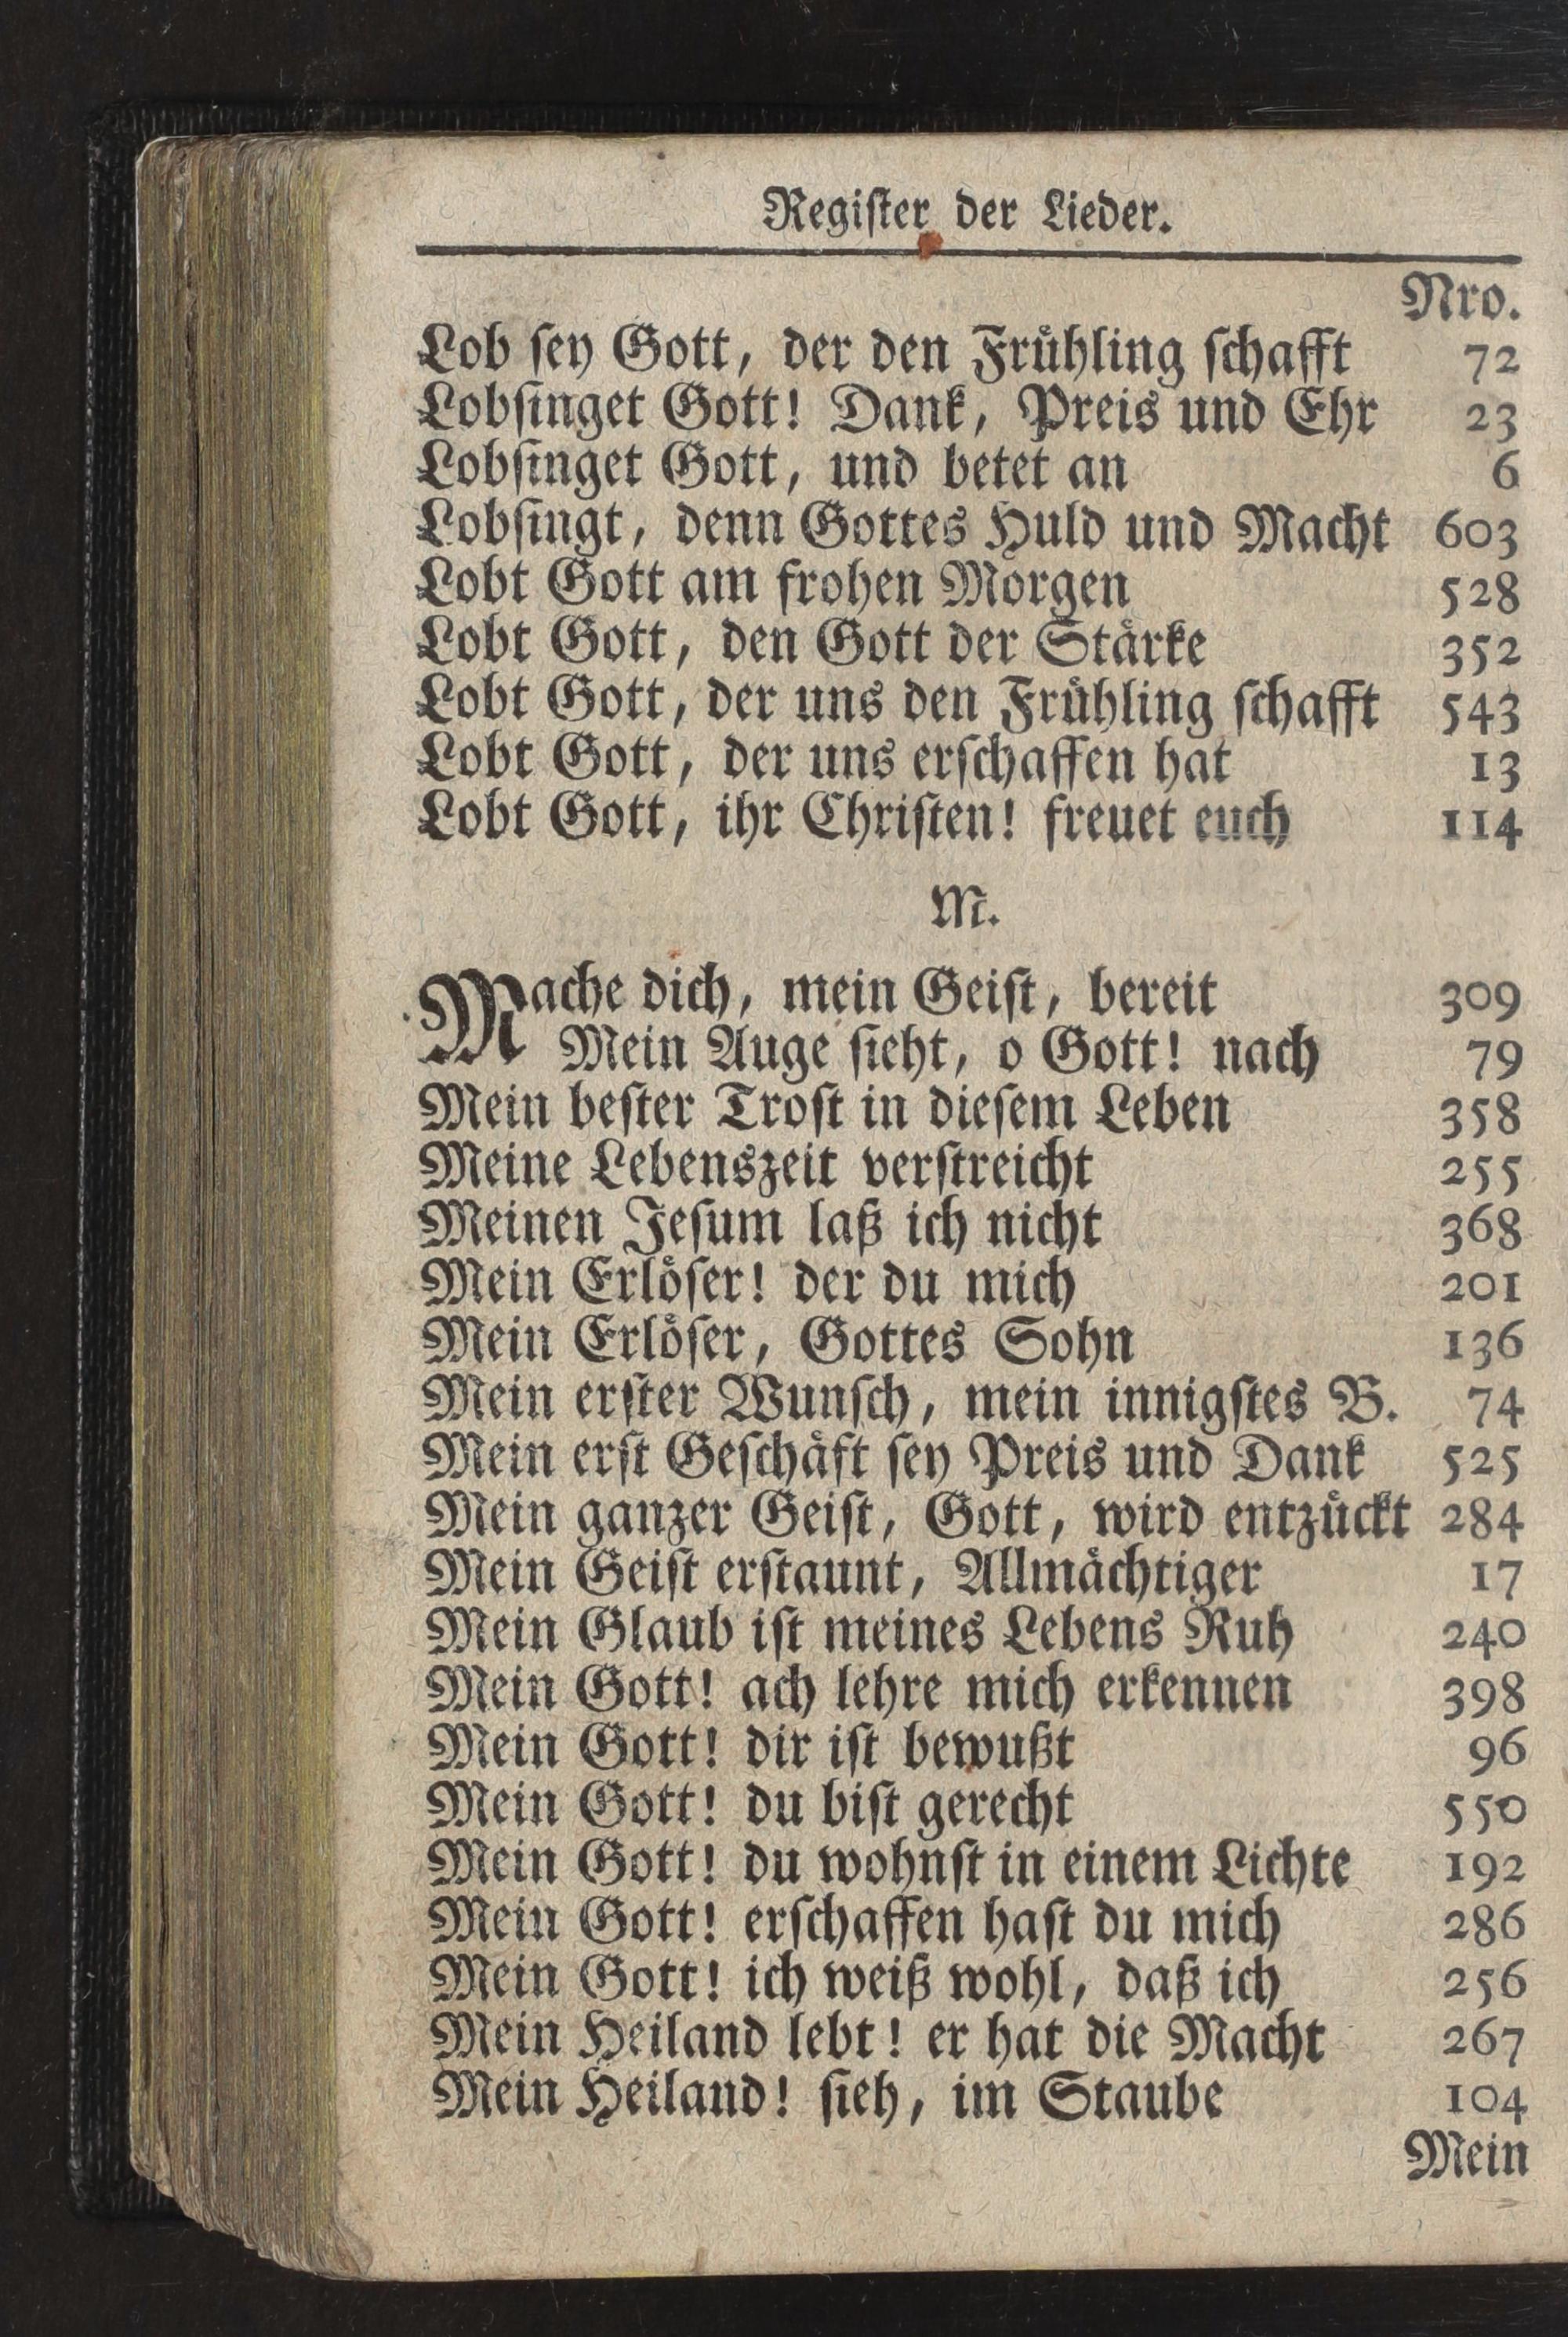 Regiſter der Lieder.
Nro.
Lob ſey Gott, der den Fruͤhling ſchafft 72
Lobſinget Gott! Dank, Preis und Ehr 23
Lobſinget Gott, und betet an 6
Lobſingt, denn Gottes Huld und Macht 603
Lobt Gott am frohen Morgen 528
Lobt Gott, den Gott der Staͤrke 352
Lobt Gott, der uns den Fruͤhling ſchafft 543
Lobt Gott, der uns erſchaffen hat 13
Lobt Gott, ihr Chriſten! freuet euch 114
M.
Mache dich, mein Geiſt, bereit 309
Mein Auge ſieht, o Gott! nach 79
Mein beſter Troſt in dieſem Leben 358
Meine Lebenszeit verſtreicht 255
Meinen Jeſum laß ich nicht 368
Mein Erloͤſer! der du mich 201
Mein Erloͤſer, Gottes Sohn 136
Mein erſter Wunſch, mein innigſtes B. 74
Mein erſt Geſchaͤft ſey Preis und Dank 525
Mein ganzer Geiſt, Gott, wird entzuͤckt 284
Mein Geiſt erſtaunt, Allmaͤchtiger 17
Mein Glaub iſt meines Lebens Ruh 240
Mein Gott! ach lehre mich erkennen 398
Mein Gott! dir iſt bewußt 96
Mein Gott! du biſt gerecht 550
Mein Gott! du wohnſt in einem Lichte 192
Mein Gott! erſchaffen haſt du mich 286
Mein Gott! ich weiß wohl, daß ich 256
Mein Heiland lebt! er hat die Macht 267
Mein Heiland! ſieh, im Staube 104
Mein